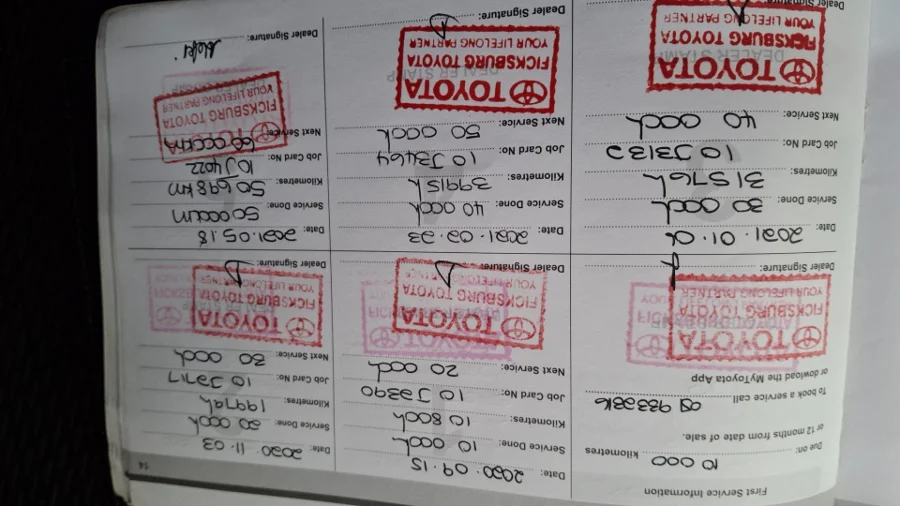 First Service Information
Due on: 10 000 kilometres
or 12 months from date of sale.
To book a service call
or dowload the MyToyota App
TOYOTA
FICKSBURG TOYOTA
YOUR LIFELONG PARTNER
Dealer Signature:
Date: 2020.09.15
Service Done: 10 000k
Kilometres: 10 800k
Job Card No: 10J2390
Next Service: 20 000k
TOYOTA
FICKSBURG TOYOTA
YOUR LIFELONG PARTNER
Dealer Signature:
14
Date: 2020.11.03
Service Done: 20 000k
Kilometres: 19979k
Job Card No: 10J2717
Next Service: 30 000k
TOYOTA
FICKSBURG TOYOTA
YOUR LIFELONG PARTNER
Dealer Signature:
Date: 2021.01.06
Service Done: 30 000k
Kilometres: 31576k
Job Card No: 10J3132
Next Service: 40 000k
DEALER STAMP
TOYOTA
FICKSBURG TOYOTA
YOUR LIFELONG PARTNER
Dealer Signature:
Date: 2021.02.23
Service Done: 40 000k
Kilometres: 39915k
Job Card No: 10J3464
Next Service: 50 000k
DEALER STAMP
TOYOTA
FICKSBURG TOYOTA
YOUR LIFELONG PARTNER
Dealer Signature:
Date: 2021.05.18
Service Done: 50 000km
Kilometres: 50 698km
Job Card No: 10J4022
Next Service: 60 000km
TOYOTA
FICKSBURG TOYOTA
YOUR LIFELONG PARTNER
Dealer Signature: